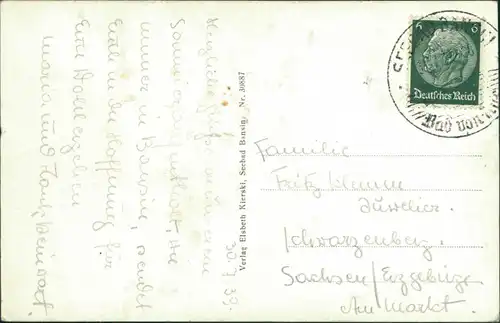 Herzliche Grüße aus unserem
Sommeraufenthalt, wie
immer in Bansin, sendet
Euch in der Hoffnung für
Euer Wohlergehen
Maria und
30.7.39.
Verlag Elsbeth Kierski, Seebad Bansin. Nr. 30887
6 6
Deutsches Reich
SEEBAD BANSIN
Familie
Fritz Klemm
Juwelier.
Schwarzenberg.
Sachsen/Erzgebirge
Am Markt.